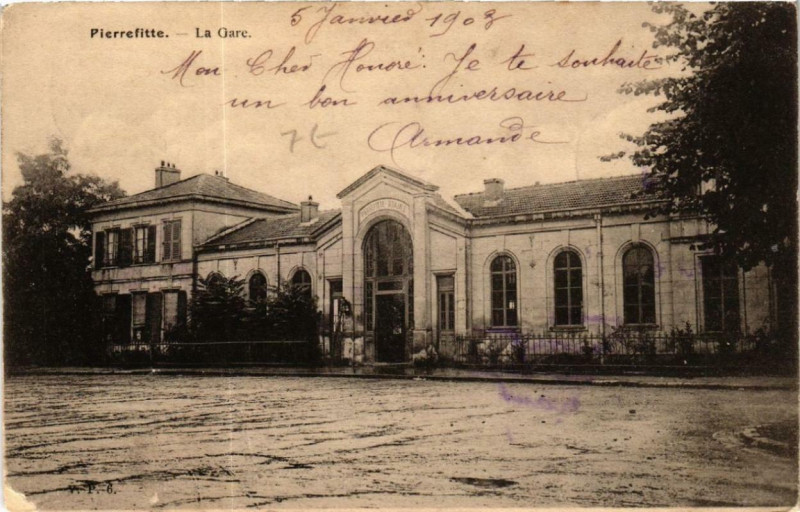 Pierrefitte. — La Gare.
5 Janvier 1903
Mon Cher Honoré. Je te souhaite
un bon anniversaire
Armande